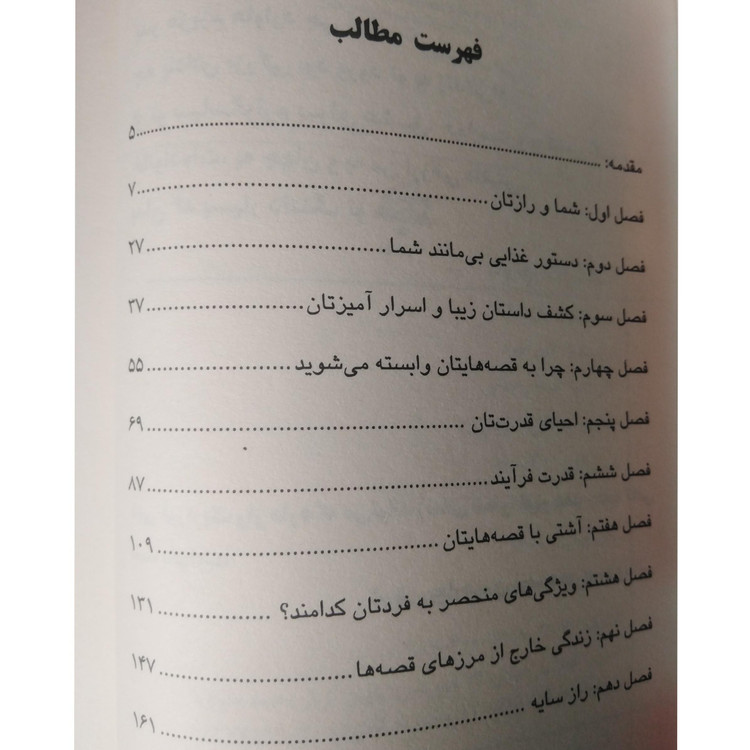 فهرست مطالب
مقدمه: ۵
فصل اول: شما و رازتان ۷
فصل دوم: دستور غذایی بی‌مانند شما ۲۷
فصل سوم: کشف داستان زیبا و اسرار آمیزتان ۳۷
فصل چهارم: چرا به قصه‌هایتان وابسته می‌شوید ۵۵
فصل پنجم: احیای قدرت‌تان ۶۹
فصل ششم: قدرت فرآیند ۸۷
فصل هفتم: آشتی با قصه‌هایتان ۱۰۹
فصل هشتم: ویژگی‌های منحصر به فردتان کدامند؟ ۱۳۱
فصل نهم: زندگی خارج از مرزهای قصه‌ها ۱۴۷
فصل دهم: راز سایه ۱۶۱